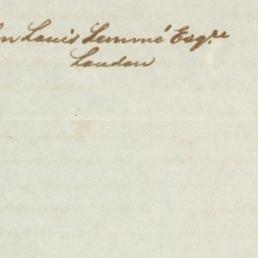 n Louis Lemmé Esqre
London